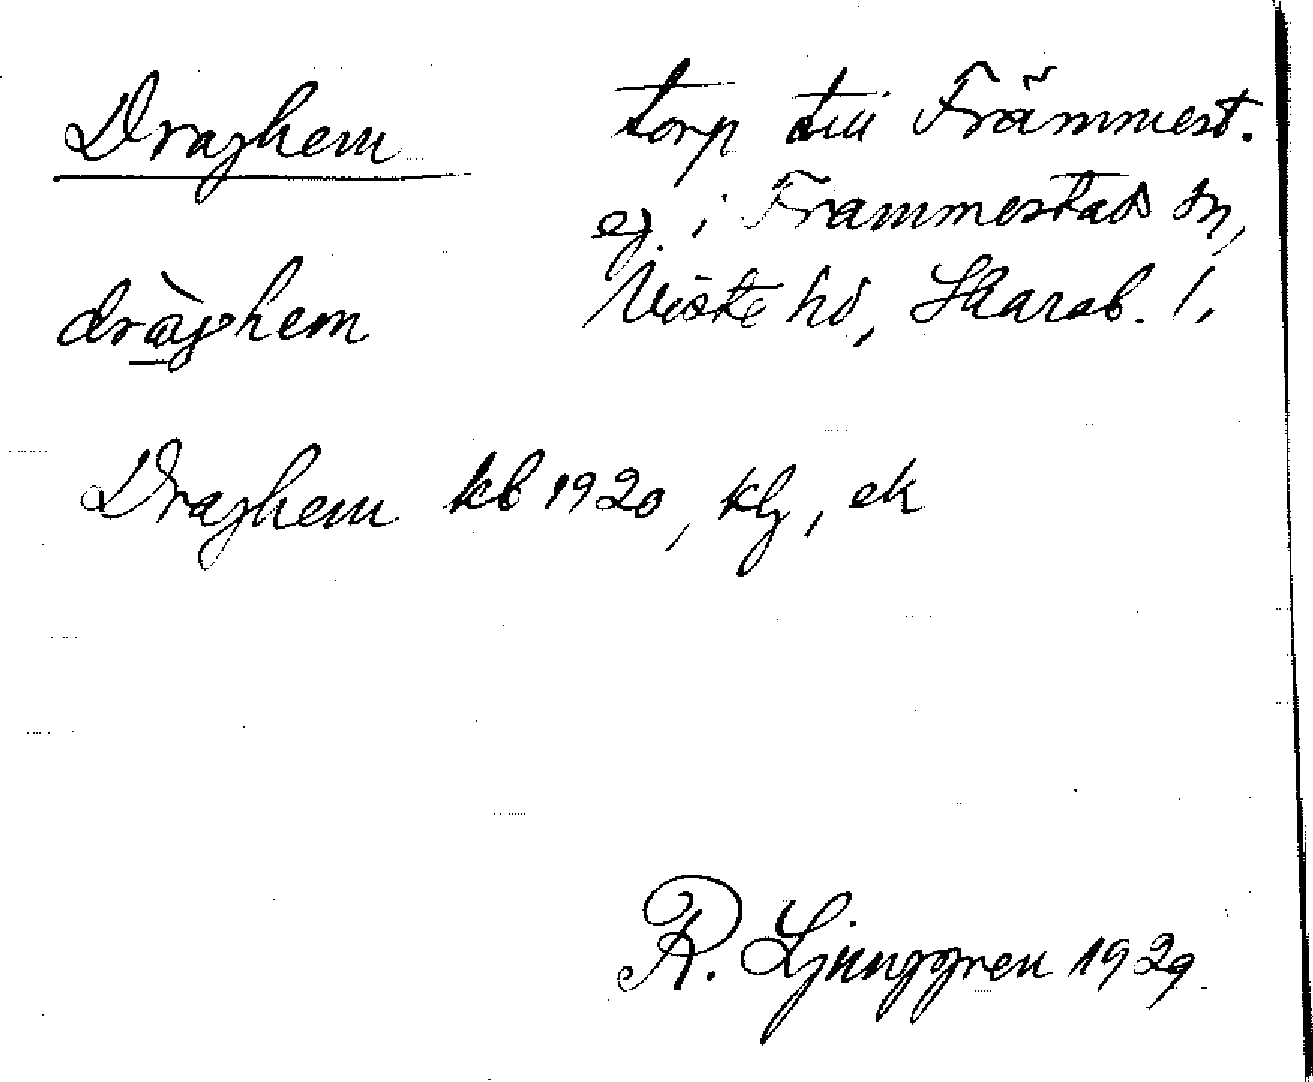 Draghem
torp till Främmest.
eg. i Främmestads sn,
Viste hd, Skarab. l.
dràghem
Draghem kb 1920, klj, ek
R. Ljunggren 1929